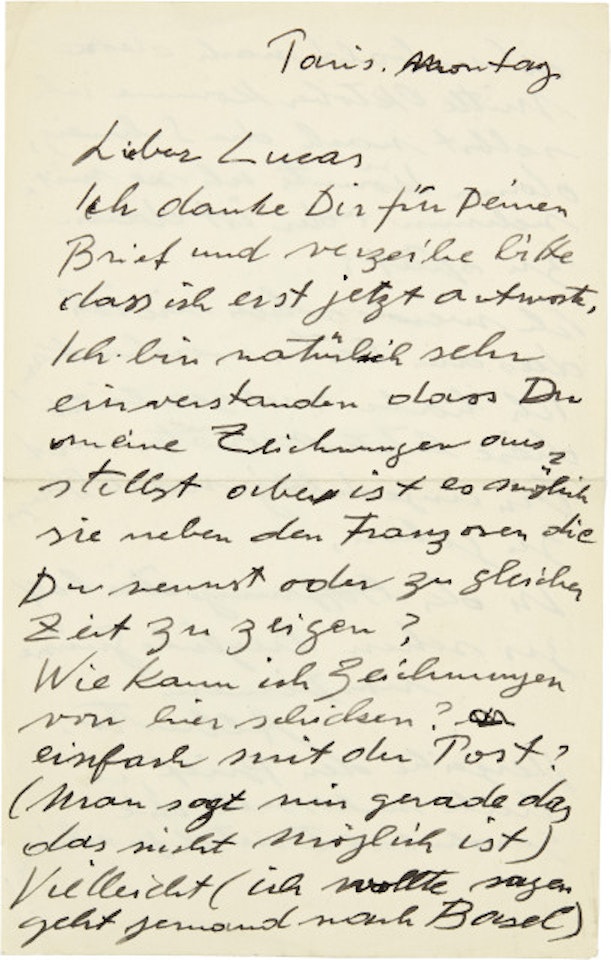 Paris. Montag
Lieber Lucas
Ich danke Dir für Deinen
Brief und verzeihe bitte
dass ich erst jetzt antworte,
Ich bin natürlich sehr
einverstanden dass Du
meine Zeichnungen aus-
stellst aber ist es möglich
sie neben den Franzosen die
Du nennst oder zu gleicher
Zeit zu zeigen?
Wie kann ich Zeichnungen
von hier schicken?
einfach mit der Post?
(Man sagt mir gerade das
das nicht möglich ist)
Vielleicht (ich wollte sagen
geht jemand nach Basel)